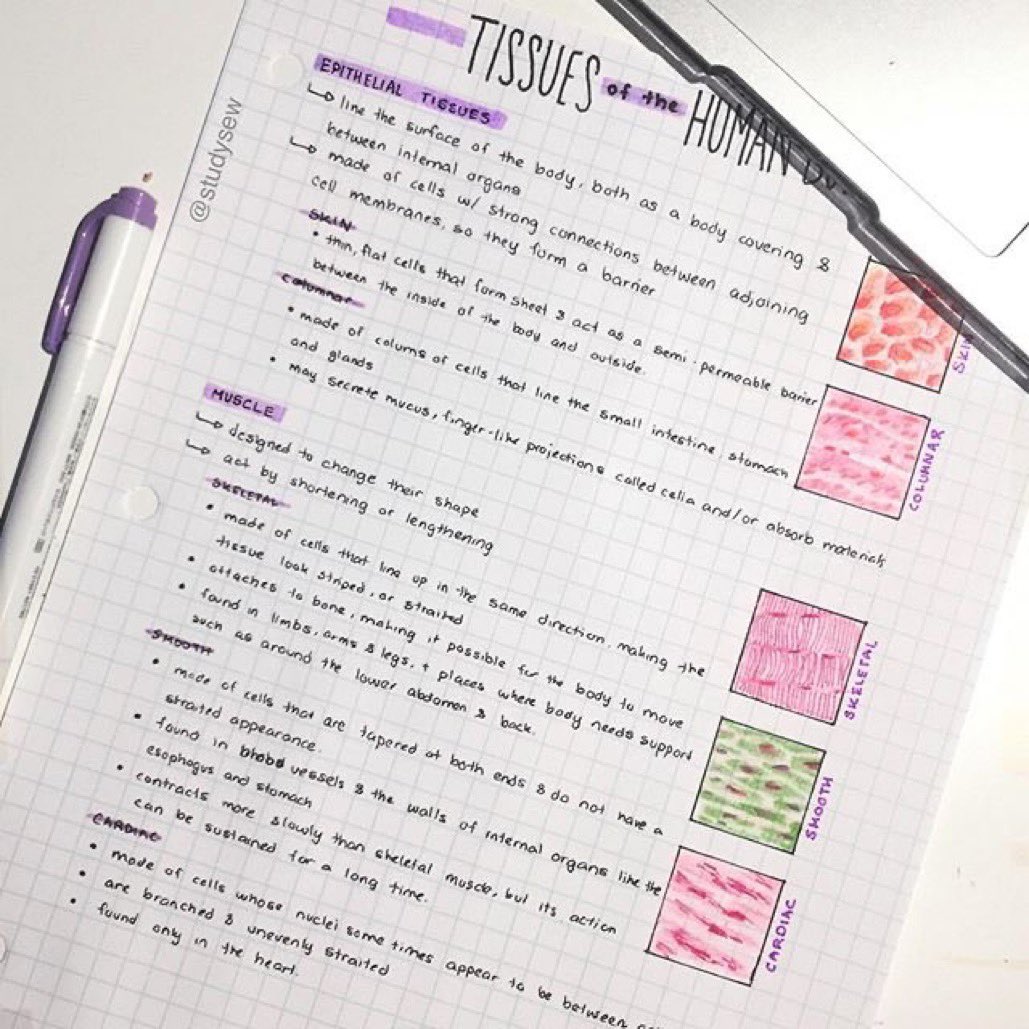 TISSUES of the HUMAN
@studysew
EPITHELIAL TISSUES
↳ line the surface of the body, both as a body covering &
between internal organs
↳ made of cells w/ strong connections between adjoining
cell membranes, so they form a barrier
SKIN
• thin, flat cells that form sheet & act as a semi-permeable barrier
between the inside of the body and outside.
SKIN
columnar
• made of colums of cells that line the small intestine, stomach
and glands
• may secrete mucus, finger-like projections called celia and/or absorb materials
COLUMNAR
MUSCLE
↳ designed to change their shape
↳ act by shortening or lengthening
SKELETAL
• made of cells that line up in the same direction, making the
tissue look striped, or straited
• attaches to bone, making it possible for the body to move
• found in limbs, arms & legs, + places where body needs support
such as around the lower abdomen & back.
SKELETAL
SMOOTH
• made of cells that are tapered at both ends & do not have a
straited appearance.
• found in vessels & the walls of internal organs like the
esophagus and stomach
• contracts more slowly than skeletal muscle, but its action
can be sustained for a long time.
SMOOTH
CARDIAC
• made of cells whose nuclei some times appear to be between
• are branched & unevenly straited
• found only in the heart.
CARDIAC